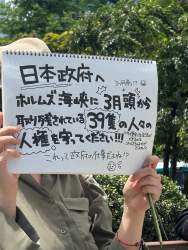 日本政府へ
ホルムズ海峡に3月頭から
取り残されている39隻の人々の
人権を守ってください!!!
これって政府の仕事だよね!?